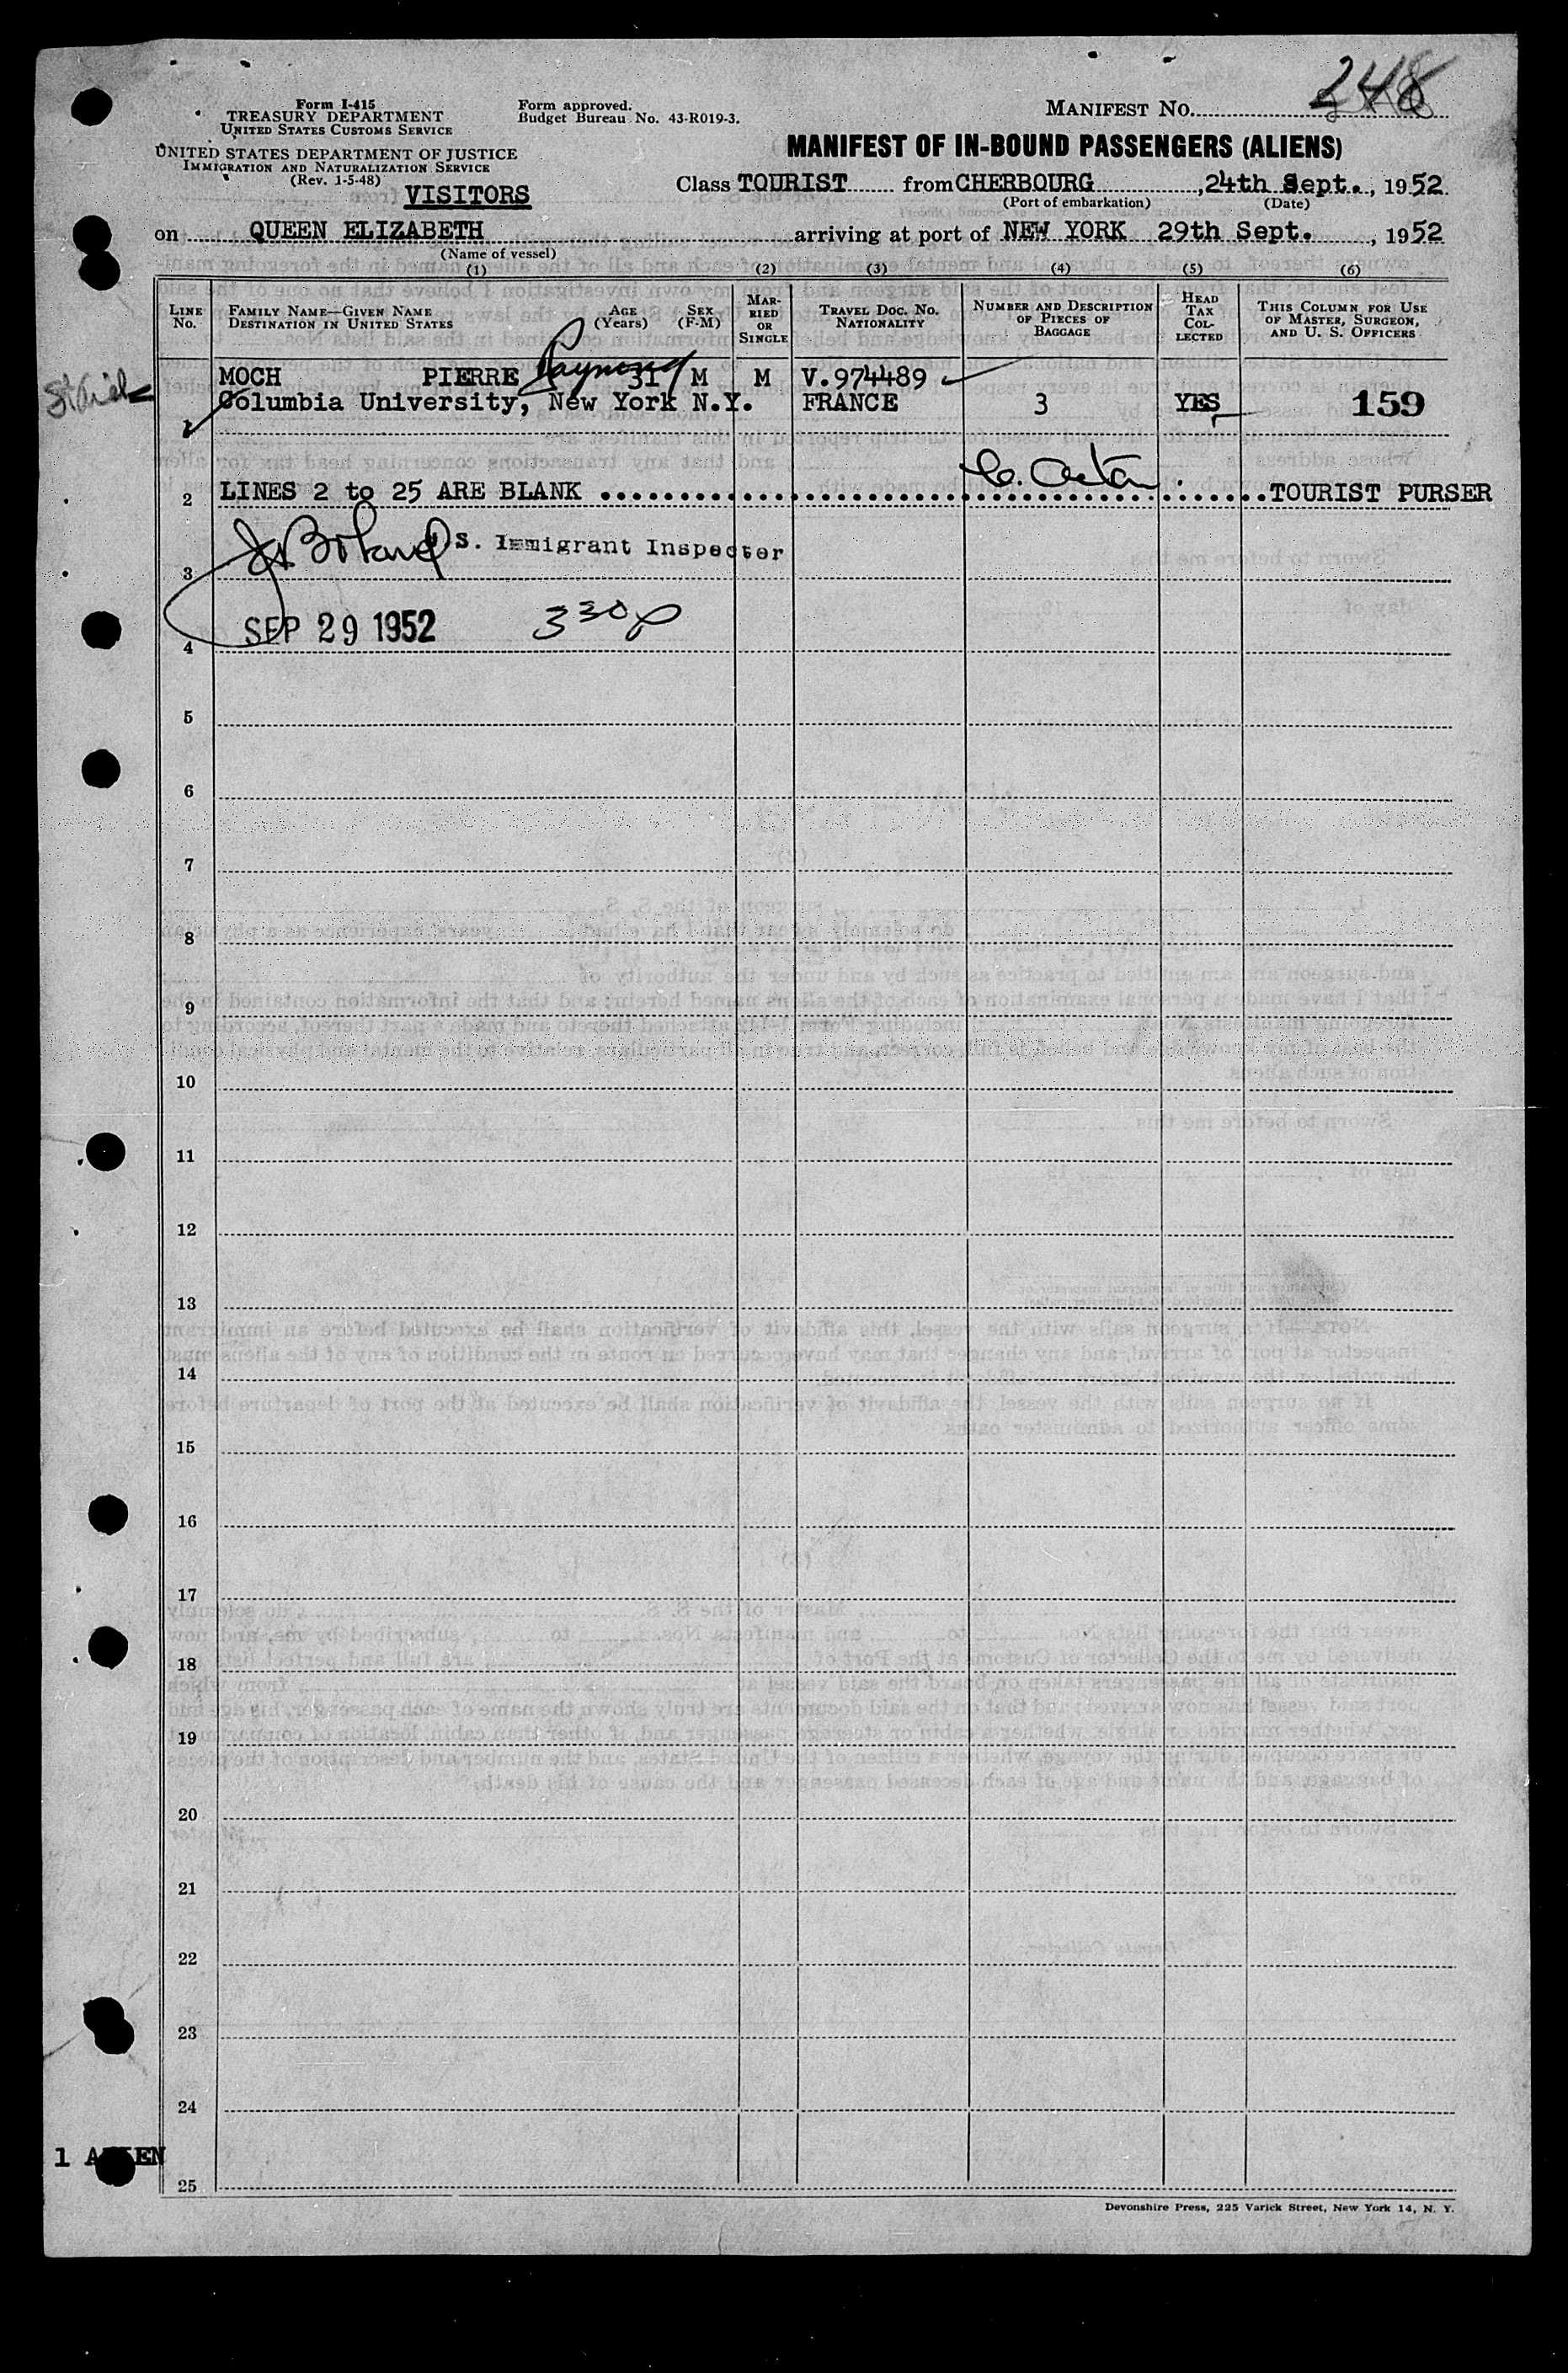 248
Form I-415
TREASURY DEPARTMENT
UNITED STATES CUSTOMS SERVICE
Form approved.
Budget Bureau No. 43-R019-3.
MANIFEST NO.
UNITED STATES DEPARTMENT OF JUSTICE
IMMIGRATION AND NATURALIZATION SERVICE
(Rev. 1-5-48)
MANIFEST OF IN-BOUND PASSENGERS (ALIENS)
VISITORS
Class TOURIST from CHERBOURG, 24th Sept., 1952
(Port of embarkation) (Date)
on QUEEN ELIZABETH arriving at port of NEW YORK 29th Sept., 1952
(Name of vessel)
(1) (2) (3) (4) (5) (6)
LINE No.
FAMILY NAME—GIVEN NAME
DESTINATION IN UNITED STATES
AGE (Years)
SEX (F-M)
MARRIED OR SINGLE
TRAVEL DOC. NO. NATIONALITY
NUMBER AND DESCRIPTION OF PIECES OF BAGGAGE
HEAD TAX COLLECTED
THIS COLUMN FOR USE OF MASTER, SURGEON, AND U. S. OFFICERS
MOCH PIERRE Raymond 31 M M V.974489
1 Columbia University, New York N.Y. FRANCE 3 YES 159
2 LINES 2 to 25 ARE BLANK TOURIST PURSER
U.S. Immigrant Inspector
3
SEP 29 1952 330p
4
5
6
7
8
9
10
11
12
13
14
15
16
17
18
19
20
21
22
23
24
1 ALIEN
25
Devonshire Press, 225 Varick Street, New York 14, N. Y.